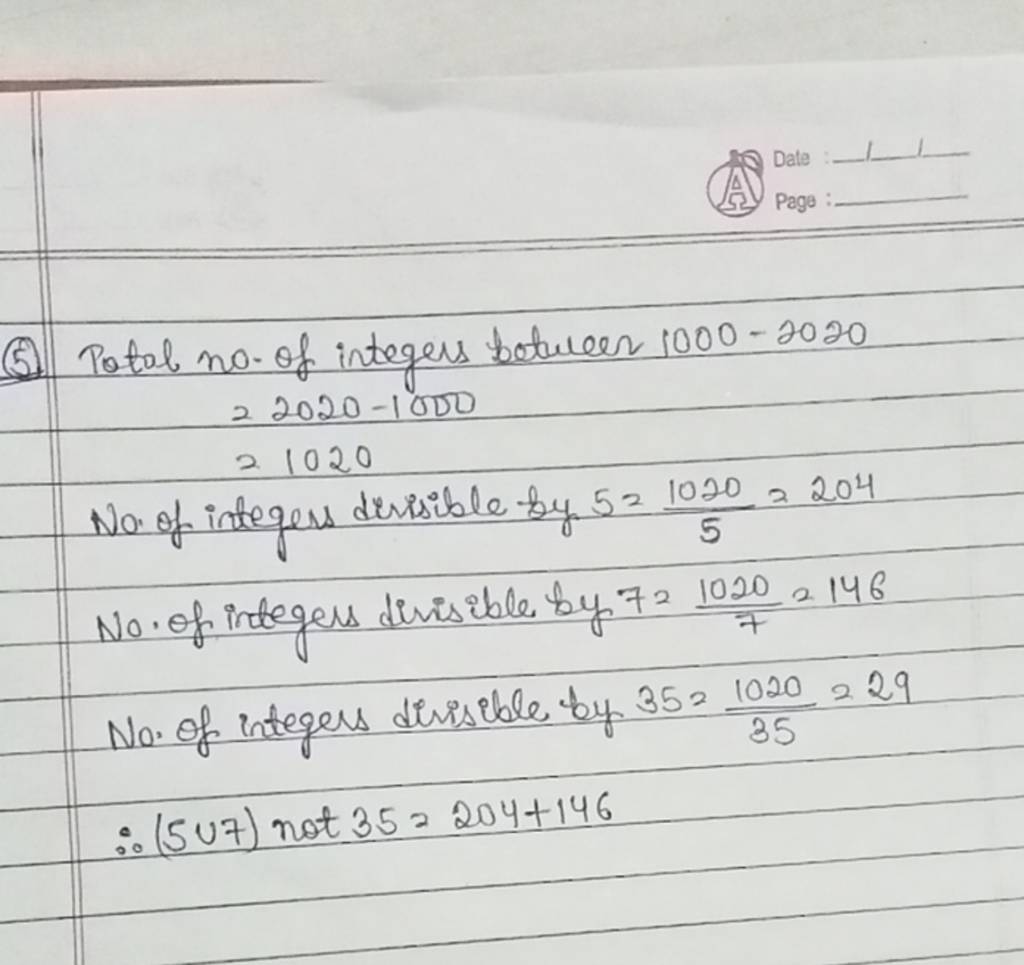 Date : / /
Page :
⑤ Total no. of integers between 1000 - 2020
= 2020 - 1000
= 1020
No. of integers divisible by 5 = 1020/5 = 204
No. of integers divisible by 7 = 1020/7 = 146
No. of integers divisible by 35 = 1020/35 = 29
∴ (5∪7) not 35 = 204+146